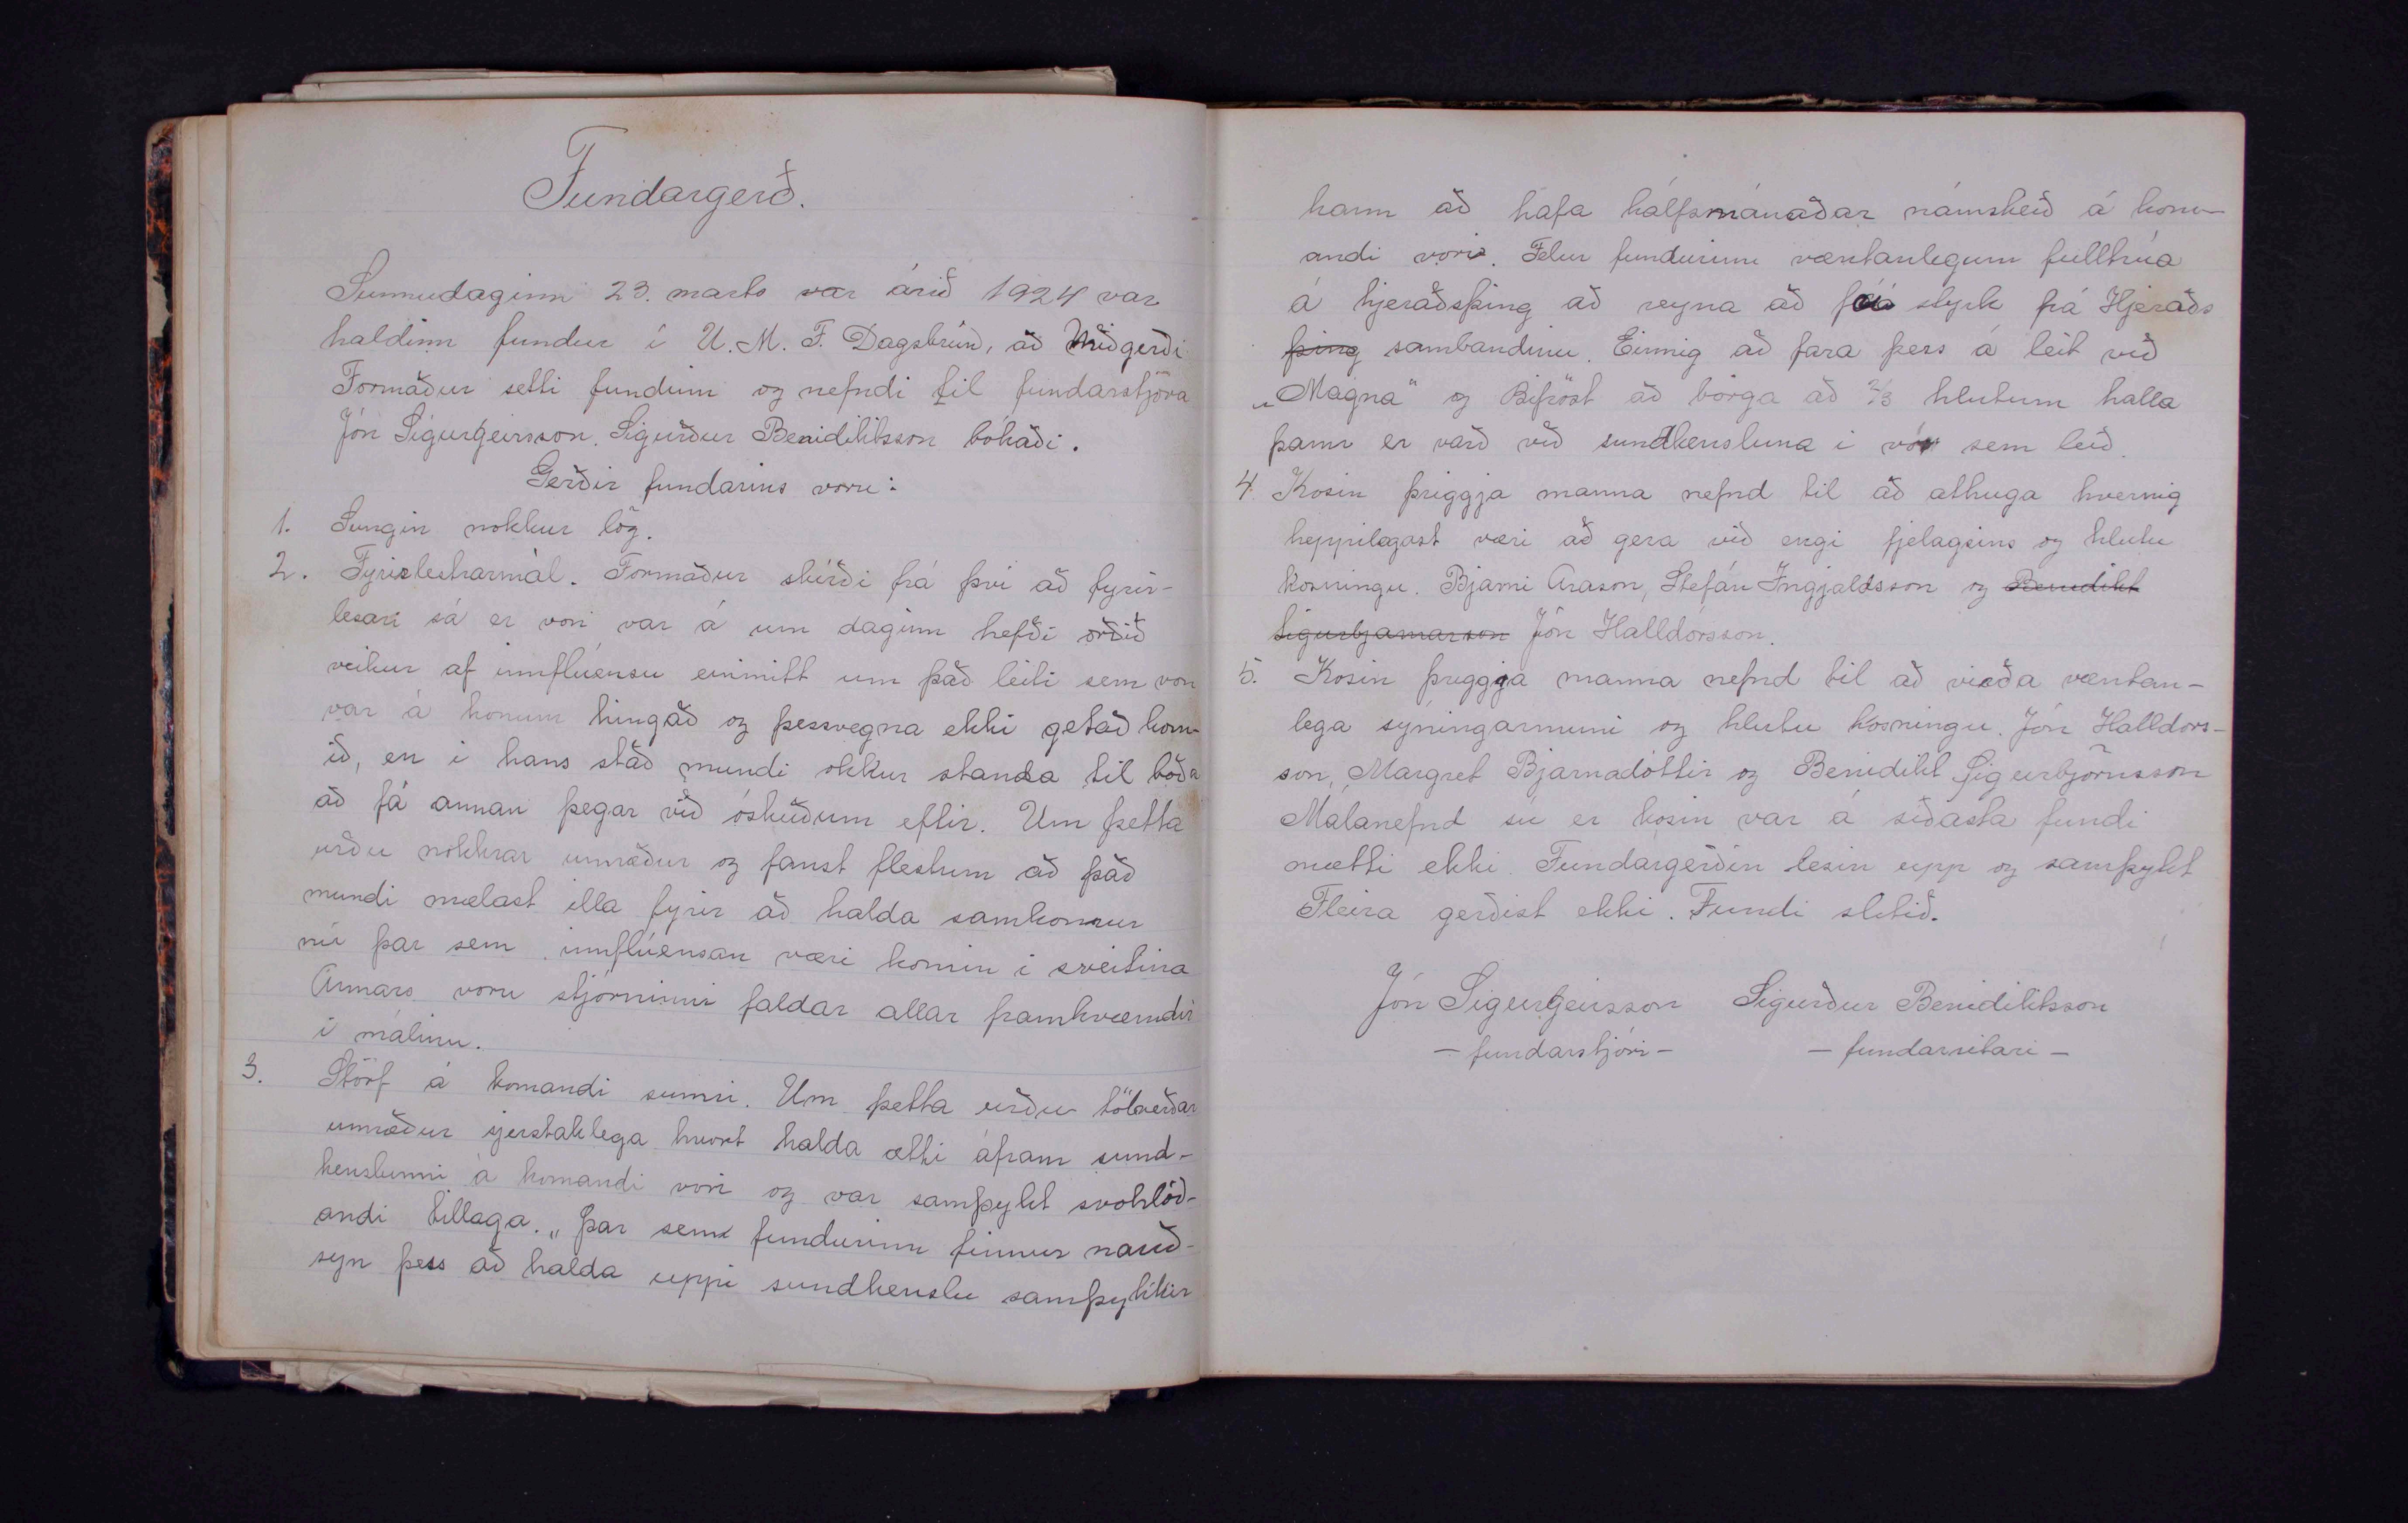 Fundargerð.
Sunnudaginn 23. marts var árið 1924 var
haldinn fundur í U. M. F. Dagsbrún, að Miðgerði
Formaður setti fundinn og nefndi til fundarstjóra
Jón Sigurgeirsson. Sigurður Benidiktsson bókaði.
Gerðir fundarins voru:
1. Sungin nokkur lög.
2. Fyrirlestrarmál. Formaður skírði frá því að fyrir-
lesari sá er von var á um daginn hefði orðið
veikur af innflúensu einmitt um það leiti sem von
var á honum hingað og þessvegna ekki getað kom-
ið, en i hans stað mundi okkur standa til boða
að fá annan þegar við óskuðum eftir. Um þetta
urðu nokkrar umræður og fanst flestum að það
mundi mælast illa fyrir að halda samkomur
nú þar sem innflúensan væri komin i sveitina
Annars voru stjórninni faldar allar framkvæmdir
i málinu.
3. Störf á komandi sumri. Um þetta urðu tölverðar
umræður sjerstaklega hvort halda ætti áfram sund-
kenslunni á komandi vori og var samþykt svohlóð-
andi tillaga. „Þar sem fundurinn finnur nauð-
syn þess að halda uppi sundkenslu samþykkir
hann að hafa hálfsmánaðar námskeið á kom-
andi vori. Felur fundurinn væntanlegum fulltrúa
á hjeraðsþing að reyna að fá styrk frá Hjeraðs
þing sambandinu. Einnig að fara þess á leit við
„Magna" og Bifröst að borga að 2/3 hlutum halla
þann er varð við sundkensluna i vor sem leið.
4. Kosin þriggja manna nefnd til að athuga hvernig
heppilegast væri að gera við engi fjelagsins og hlutu
kosningu. Bjarni Arason, Stefán Ingjaldsson og Benedikt
Sigurbjarnarson Jón Halldórsson.
5. Kosin þriggja manna nefnd til að viða væntan-
lega syningarmuni og hlutu kosningu. Jón Halldórs-
son, Margret Bjarnadóttir og Benidikt Sigurbjörnsson
Málanefnd sú er kosin var á siðasta fundi
mætti ekki. Fundargerðin lesin upp og samþykt
Fleira gerðist ekki. Fundi slitið.
Jón Sigurgeirsson Sigurður Benidiktsson
- fundarstjóri - - fundarritari -